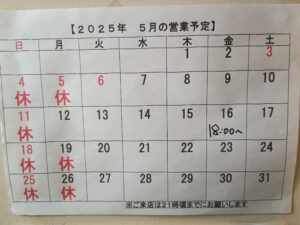 【2025年 5月の営業予定】
日 月 火 水 木 金 土
1 2 3
4 5 6 7 8 9 10
休 休
11 12 13 14 15 16 17
休 18:00~
18 19 20 21 22 23 24
休 休
25 26 27 28 29 30 31
休 休
※ご来店は21時頃までにお願いします